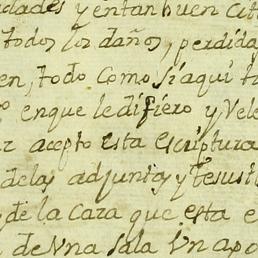 dades y en tan buen
todos los daños, perdida
en, todo como si aqui
en que le difiero y Vele
acepto esta escriptura
delas adjunta y
de la Caza que esta e
de Una Sala Un apo